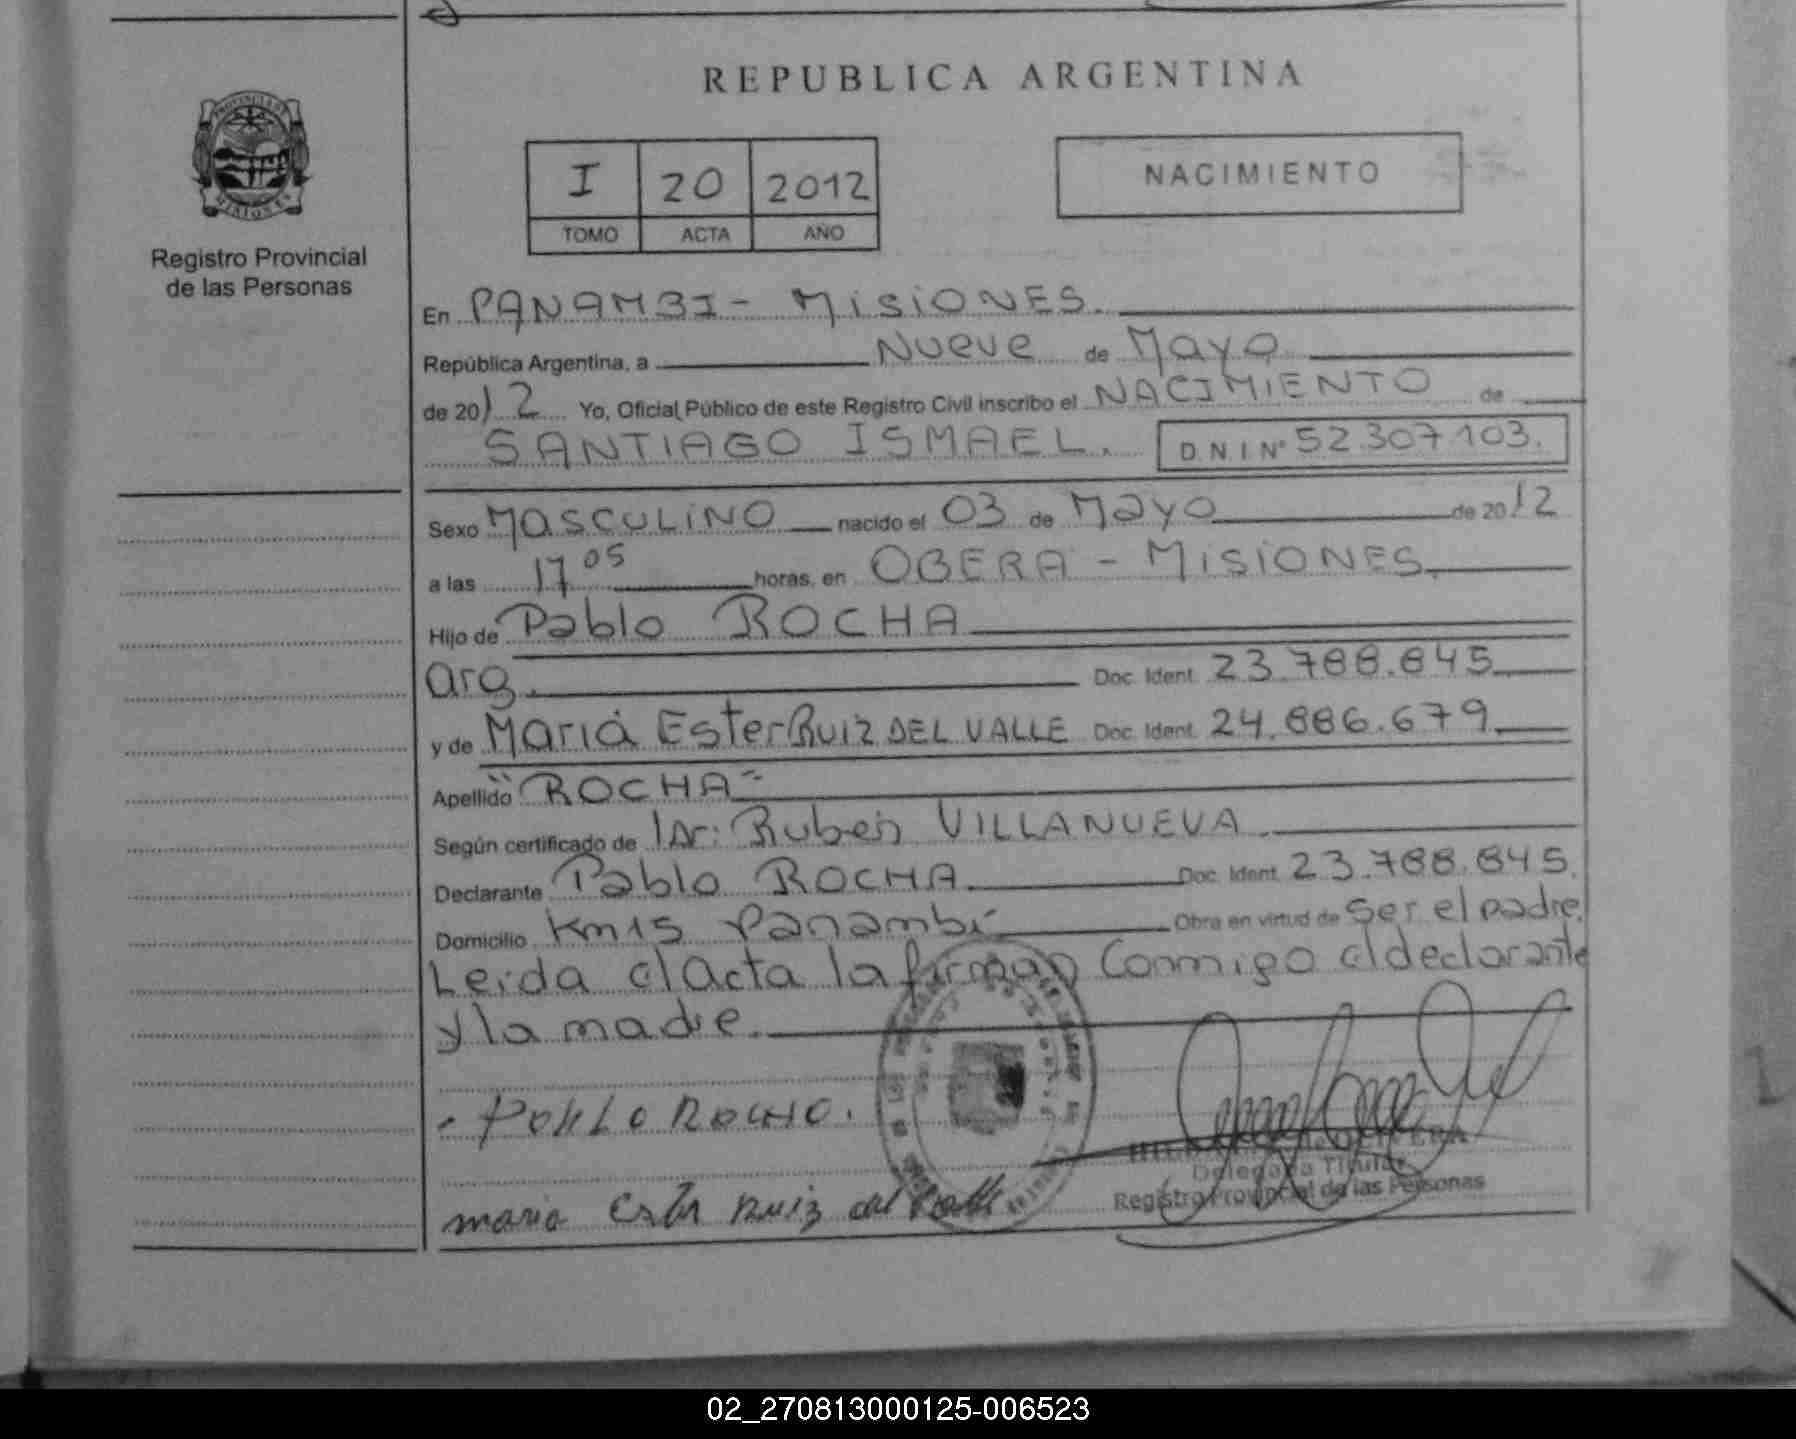 REPUBLICA ARGENTINA
PROVINCIA DE
MISIONES
Registro Provincial
de las Personas
I 20 2012
TOMO ACTA AÑO
NACIMIENTO
En PANAMBI - MISIONES.
República Argentina, a Nueve de Mayo
de 2012 Yo, Oficial Público de este Registro Civil inscribo el NACIMIENTO de
SANTIAGO ISMAEL. D.N.I Nº 52.307.103.
Sexo MASCULINO nacido el 03 de Mayo de 2012
a las 17 05 horas, en OBERA - MISIONES.
Hijo de Pablo ROCHA
arg. Doc. Ident. 23.788.845
y de Maria Ester RUIZ DEL VALLE Doc. Ident. 24.886.679
Apellido "ROCHA"
Según certificado de Dr: Ruben VILLANUEVA.
Declarante Pablo ROCHA Doc. Ident. 23.788.845.
Domicilio Km 15 Panambi Obra en virtud de ser el padre.
Leida el Acta la firman Conmigo el declarante
y la madre.
PABLO ROCHA.
maria Ester Ruiz del Valle
OLIVERA
Delegada Titular
Registro Provincial de las Personas
02_270813000125-006523